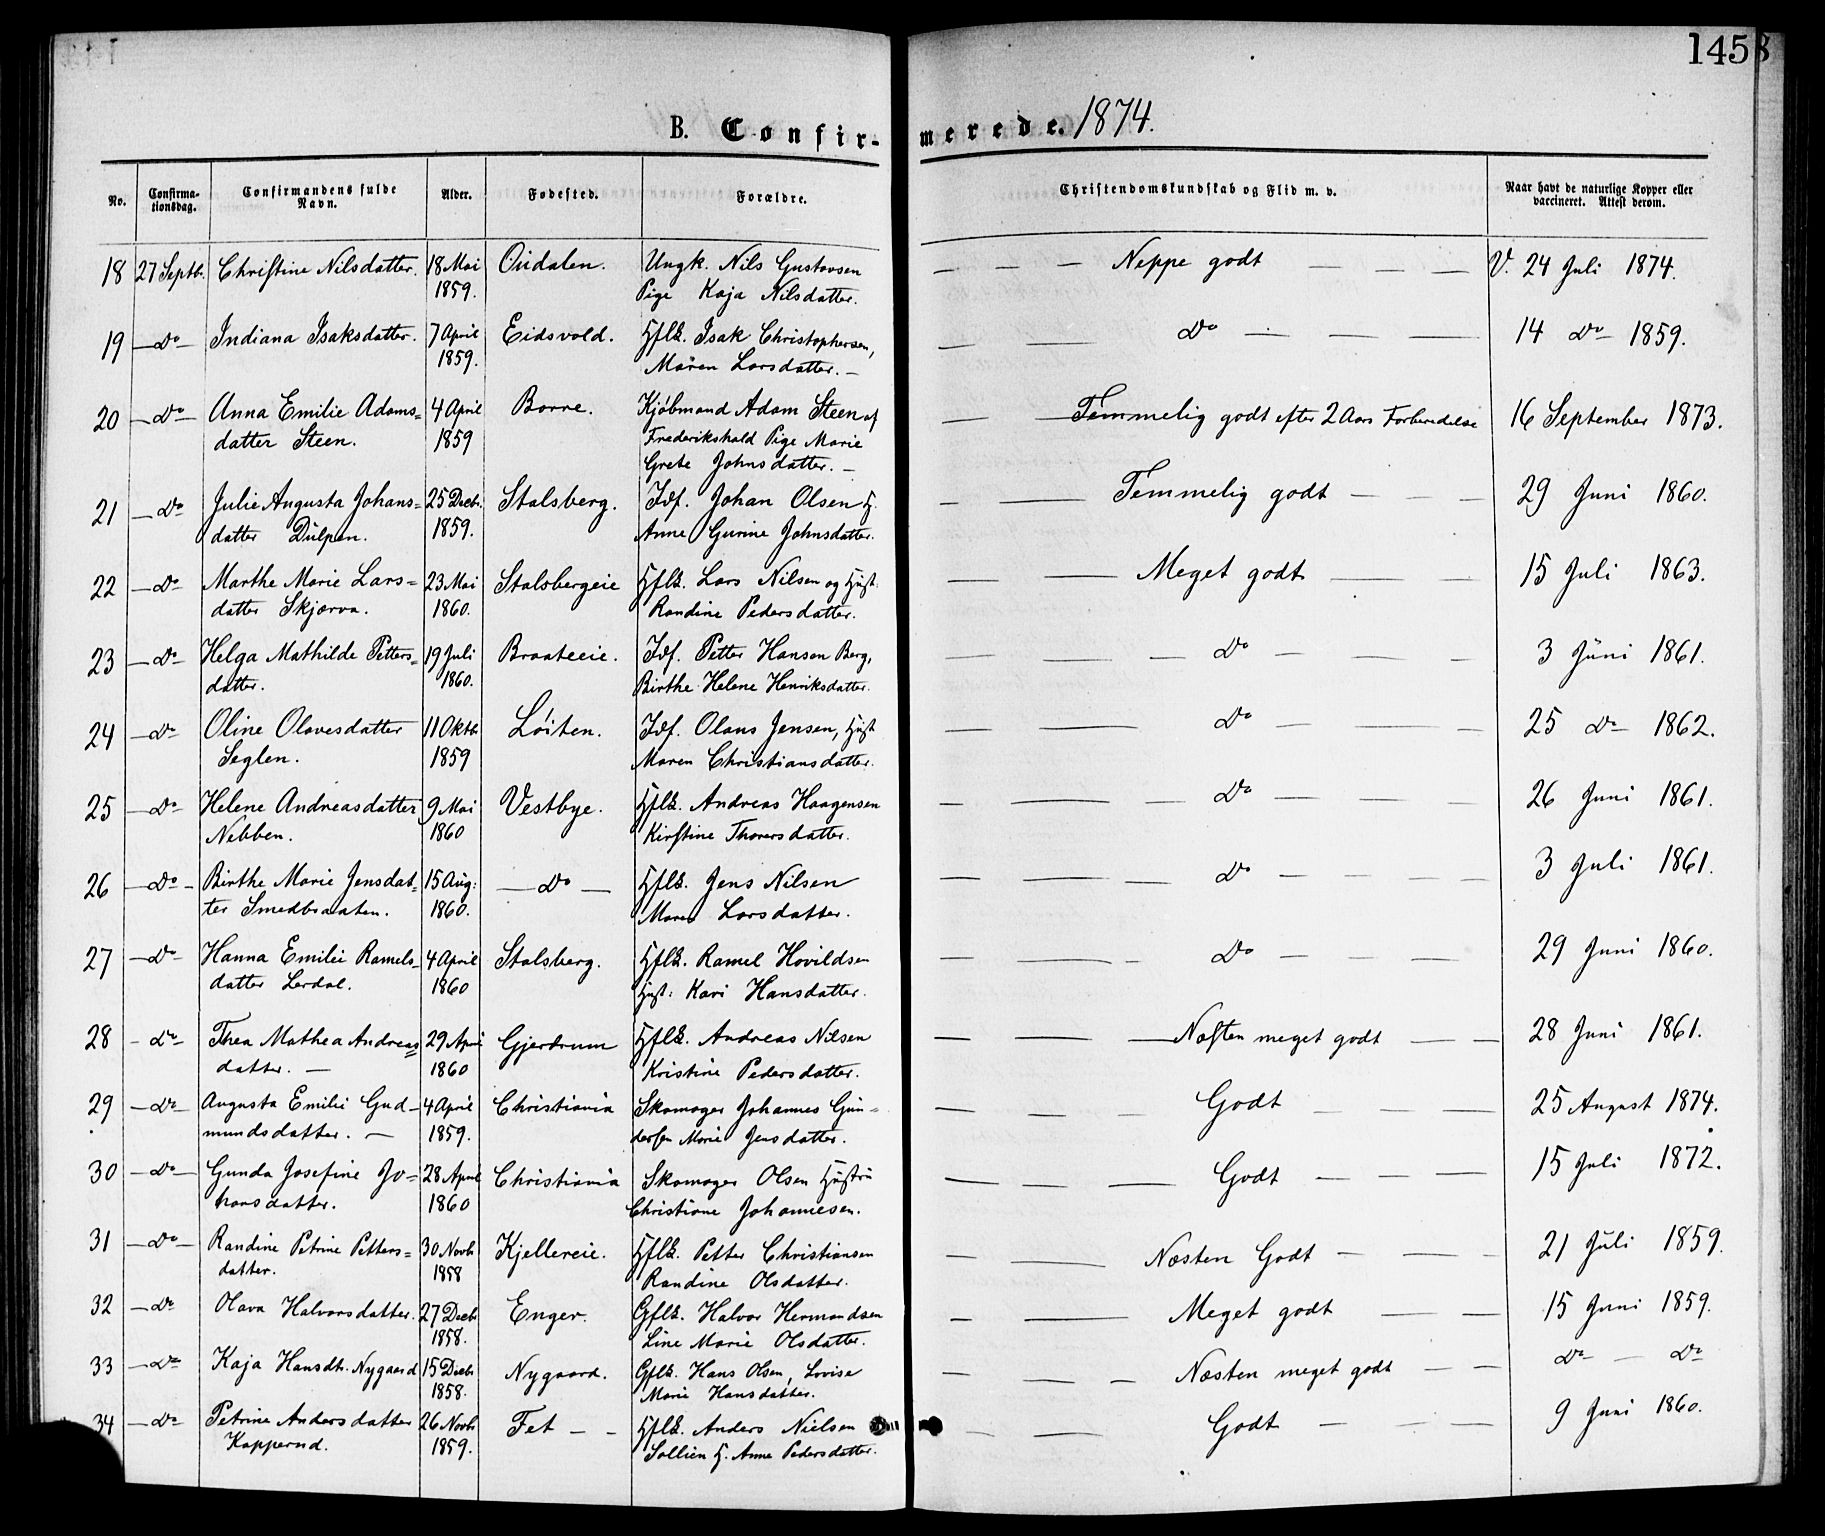 1458
B. Confir-
merede. 1874.
No.
Confirma-
tionsdag.
Confirmandens fulde
Navn.
Alder.
Fødested.
Forældre.
Christendomskundskab og Flid m. v.
Naar havt de naturlige Kopper eller
vaccineret. Attest derom.
18 27 Septb. Christine Nilsdatter. 18 Mai Oudalen. Ungk. Nils Gustavsen — — — Neppe godt — — — V. 24 Juli 1874.
1859. Pige Kaja Nilsdatter.
19 — do — Indiana Isaksdatter. 7 April Eidsvold. Hflk. Isak Christophersen, — — do — — — 14 do — 1859.
1859. Maren Larsdatter. —
20 — do — Anna Emilie Adams= 4 April Borre. Kjøbmand Adam Steen af — — Temmelig godt efter 2 Aars Forberedelse 16 September 1873.
datter Steen. 1859 Frederikshald Pige Marie
Grete Johnsdatter. —
21 — do Julie Augusta Johans= 25 Decbr. Stalsberg. Idf. Johan Olsen H. — — Temmelig godt — — — 29 Juni 1860.
datter Dülpen. 1859. Anne Gurine Johnsdatter.
22 — do — Marthe Marie Lars= 23 Mai Stalsbergeie Hflk. Lars Nilsen og Hust. — — Meget godt — — 15 Juli 1863.
datter Skjærva. 1860. Randine Pedersdatter.
23 — do — Helga Mathilde Petters= 19 Juli Braateeie. Idf. Petter Hansen Berg, — — — do — — — 3 Jüni 1861.
datter. 1860. Birthe Helene Henriksdatter.
24 — do — Oline Olavesdatter 11 Oktb. Løiten. Idf. Olaus Jensen, Hust — — do — — — 25 do — 1862.
Seglen. 1859 Maren Christiansdatter.
25 — do — Helene Andreasdatter 9 Mai Vestbye. Hflk. Andreas Haagensen — — — do — — — 26 Juni 1861.
Nebben. 1860 Kirstine Thoresdatter.
26 — do — Birthe Marie Jensdat= 15 Aug: — do — Hflk. Jens Nilsen — — — do — — — — 3 Juli 1861.
ter Smedbraaten. 1860. Maren Larsdatter.
27 — do — Hanna Emilie Ramels= 4 April Stalsberg. Hflk. Ramel Hovildsen — — — do — — 29 Juni 1860.
datter Lerdal. 1860 Hust: Kari Hansdatter.
28 — do — Thea Mathea Andreas= 29 April Gjerdrum Hflk. Andreas Nilsen — — — Næsten meget godt — — 28 Juni 1861.
datter. — 1860 Kristine Pedersdatter.
29 — do — Augusta Emilie Gud— 4 April Christiania Skomager Johannes Gün= — — — Godt — — — 25 August 1874.
mundsdatter. — 1859. dersen Marie Jensdatter.
30 — do — Gunda Josefine Jo= 28 April Christiania Skomager Olsen Hustrü — — — Godt — — — 15 Juli 1872.
hansdatter. 1860 Christiane Johannesen.
31 — do — Randine Petrine Petters= 30 Novb. Kjellereie. Hflk. Petter Christiansen — — Næsten Godt — — — 21 Jüli 1859.
datter. 1858 Randine Olsdatter.
32 — do Olava Halvorsdatter. 27 Decbr Enger. Gflk. Halvor Hermandsen — — Meget godt — — 15 Juni 1859.
1858. Line Marie Olsdatter.
33 — do — Kaja Hansdt. Nygaard 15 Decbr Nygaard. Gflk. Hans Olsen, Lovise — — — Næsten meget godt — — do — — do
1858. Marie Hansdatter.
34 — do — Petrine Andersdatter 26 Novb. Fet — — Hflk. Anders Nielsen — — Godt — — — 9 Juni 1860.
Kopperud. 1859. Sollien H. Anne Pedersdatter.